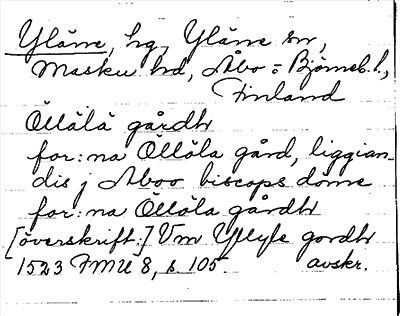 Yläne, hg, Yläne sn,
Masku hd, Åbo- o Björneb. l.,
Finland
ÖlläLä gårdh
for:na Öllöla gård, liggian-
dis j Aboo biscops döme
for:na Öllöla gårdh
[överskrift:] Vm Yllyle gordh
1523 FMU 8, s. 105. avskr.